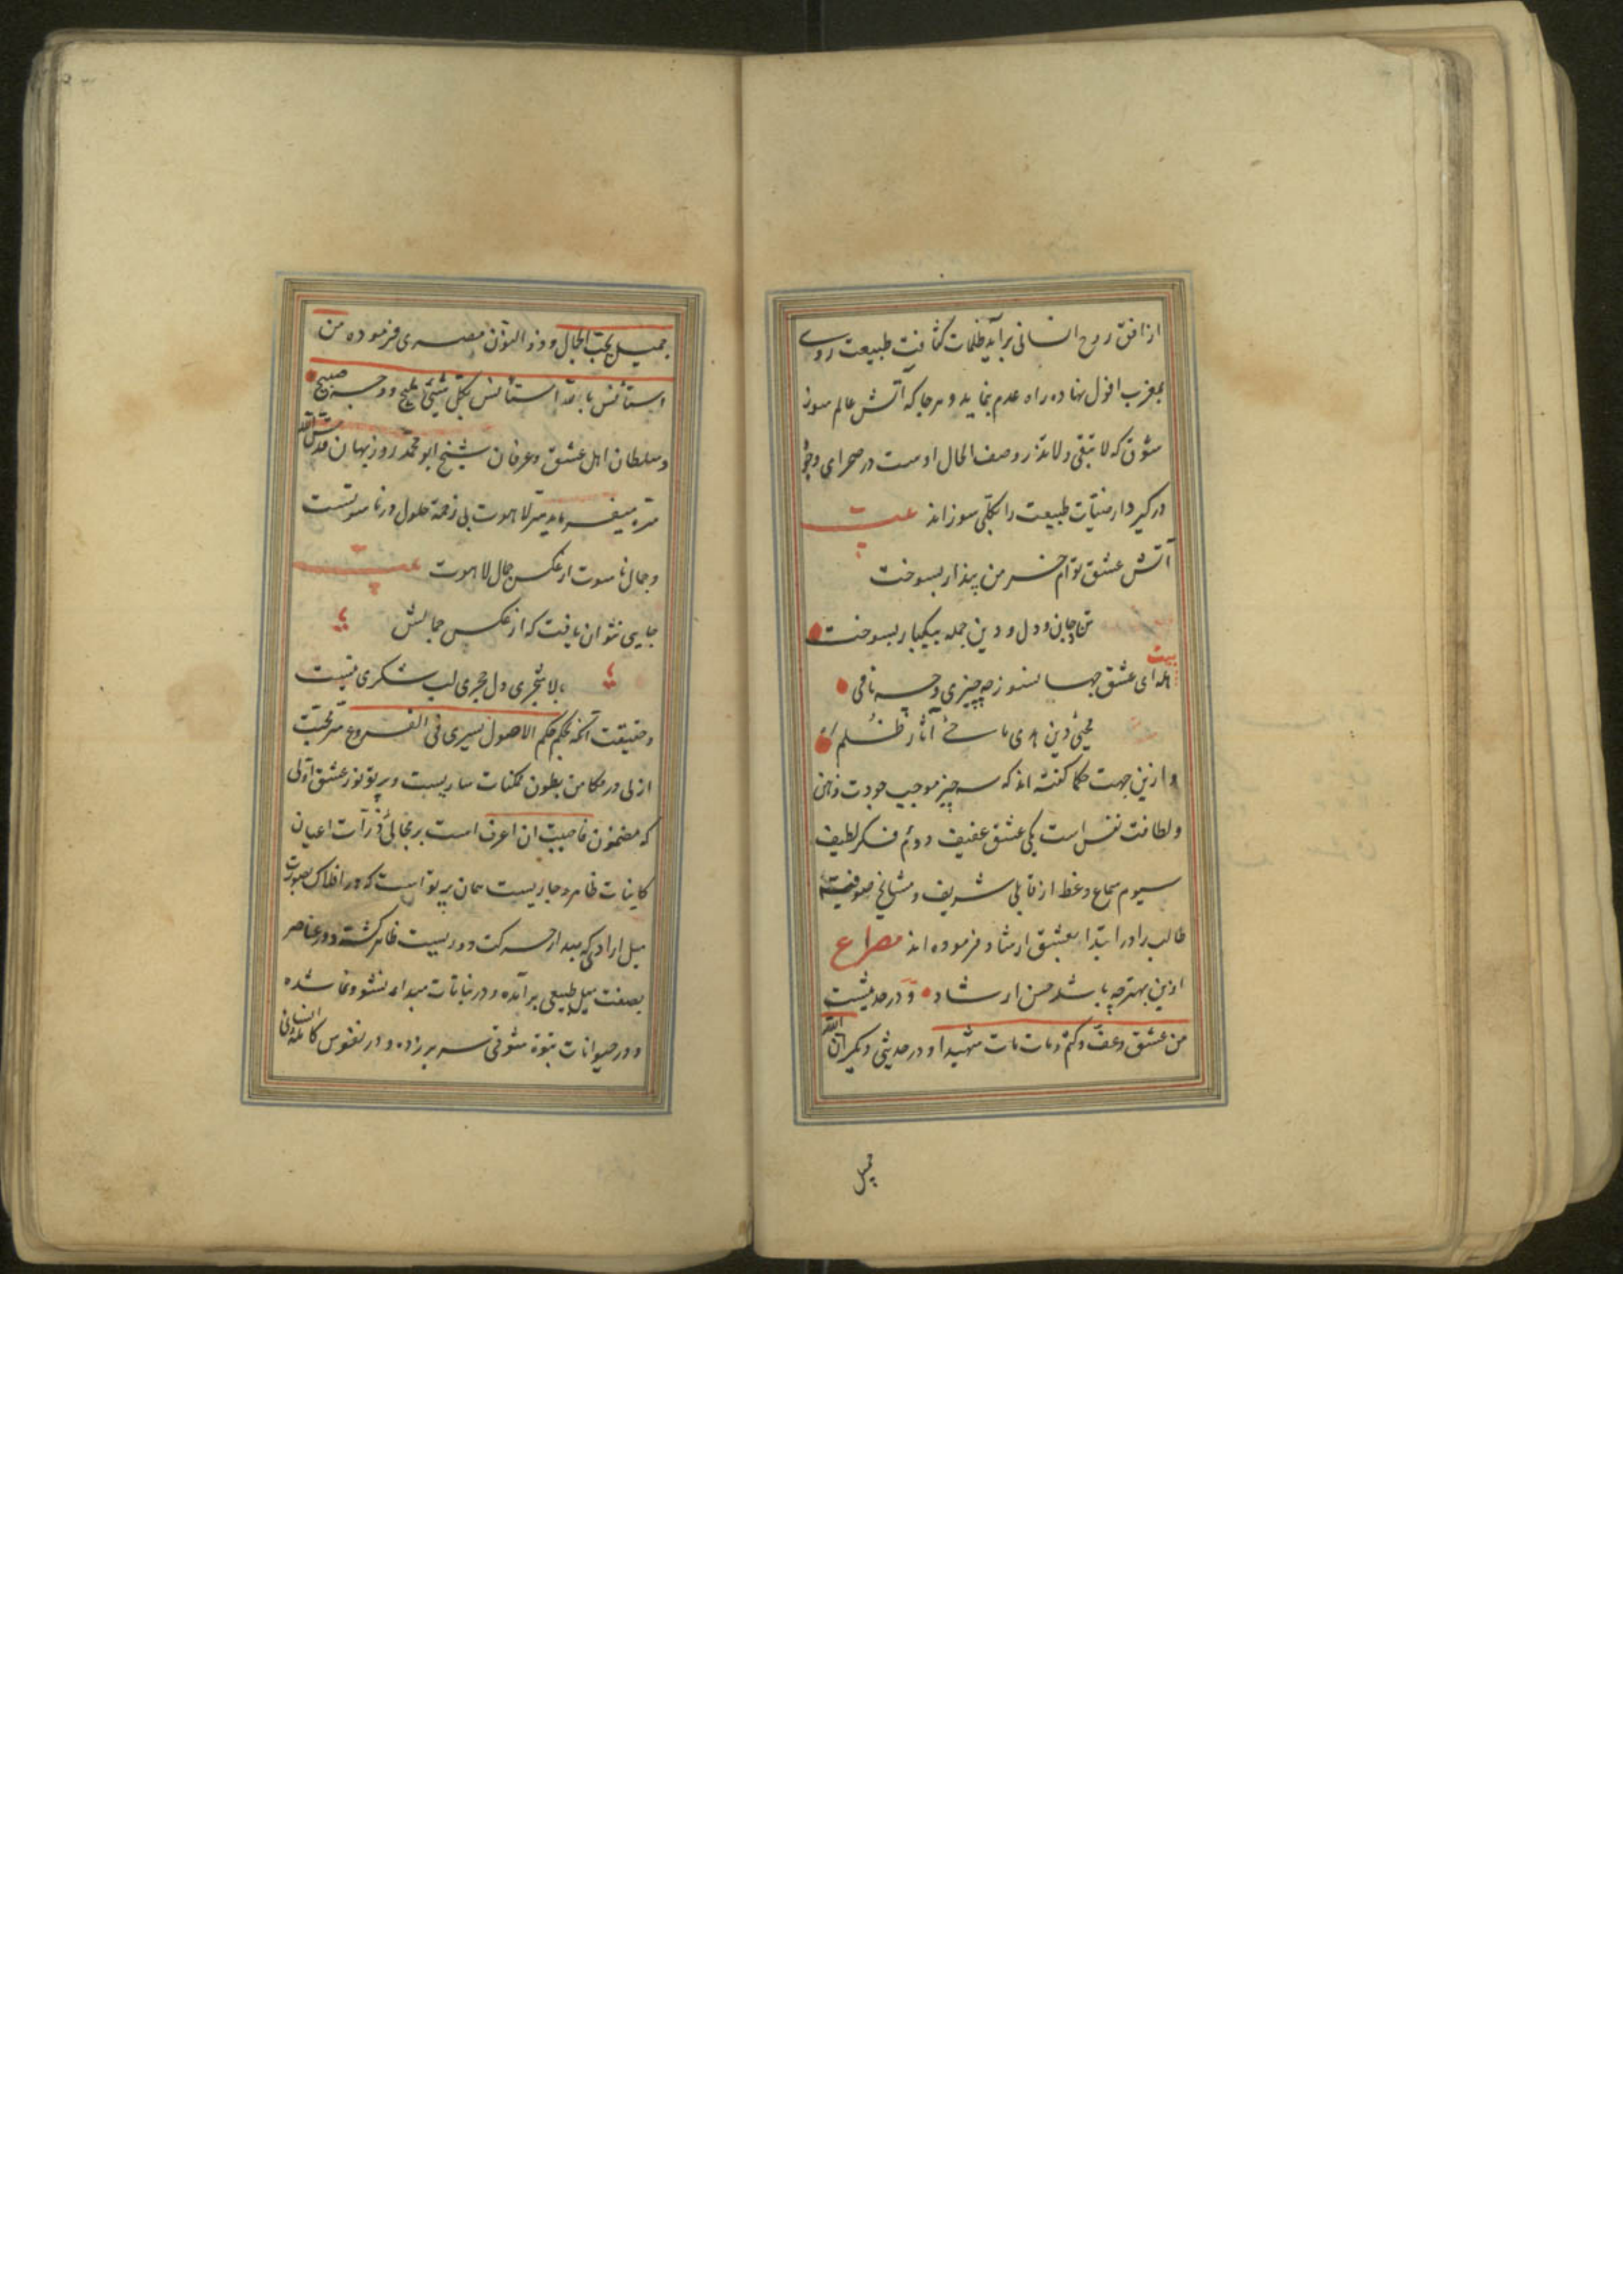 از افق روح انسانی برآید ظلمات کثافت طبیعت روی
بمغرب افول نهاده راه عدم نماید و هر جا که آتش عالم سوز
شوق که لا تبقی ولا تذر وصف الحال اوست در صحرای وجود
در گیرد ارضیات طبیعت را بکلی سوزاند بیت
آتش عشق توام خرمن پندار بسوخت
تن و جان و دل و دین جمله بیکبار بسوخت
بیت
هله ای عشق جهانسوز چه چیزی و چه نامی
محیی دین هدی ماحی آثار ظلامی
و ازین جهت حکما گفته اند که سه چیز موجب جودت ذهن
و لطافت نفس است یکی عشق عفیف و دوم فکر لطیف
سیوم سماع وعظ از قایلی شریف و مشایخ صوفیه
طالب را در ابتدا بعشق ارشاد فرموده اند مصراع
ازین بهتر چه باشد حسن ارشاد و در حدیثست
من عشق وعف وکتم ومات مات شهیدا و در حدیثی دیگر ان الله
جمیل
جمیل یحب الجمال و ذو النون مصری فرموده من
استأنس بالله استأنس بکل شیئ ملیح و وجه صبیح
و سلطان اهل عشق و عرفان شیخ ابو محمد روزبهان قدس الله
سره میفرماید سر لاهوت بی زحمة حلول در ناسوتست
و جمال ناسوت از عکس جمال لاهوت بیت
جایی نتوان یافت که از عکس جمالش
بالا شجری دل حجری لب شکری نیست
و حقیقت آنکه بحکم حکم الاصول یسری فی الفروع سر محبت
ازلی در مکامن بطون ممکنات ساریست و پرتو نور عشق اولی
که مضمون فاحببت ان اعرف است بر مجالی ذرات اعیان
کاینات ظاهر و جاریست همان پرتو است که در افلاک بصورت
میل ارادی که مبدا حرکت دوریست ظاهر گشته و در عناصر
بصفت میل طبیعی برآمده و در نباتات مبداء نشو و نما شده
و در حیوانات بقوة شوقی سر بر زده و در نفوس کامله انسانی